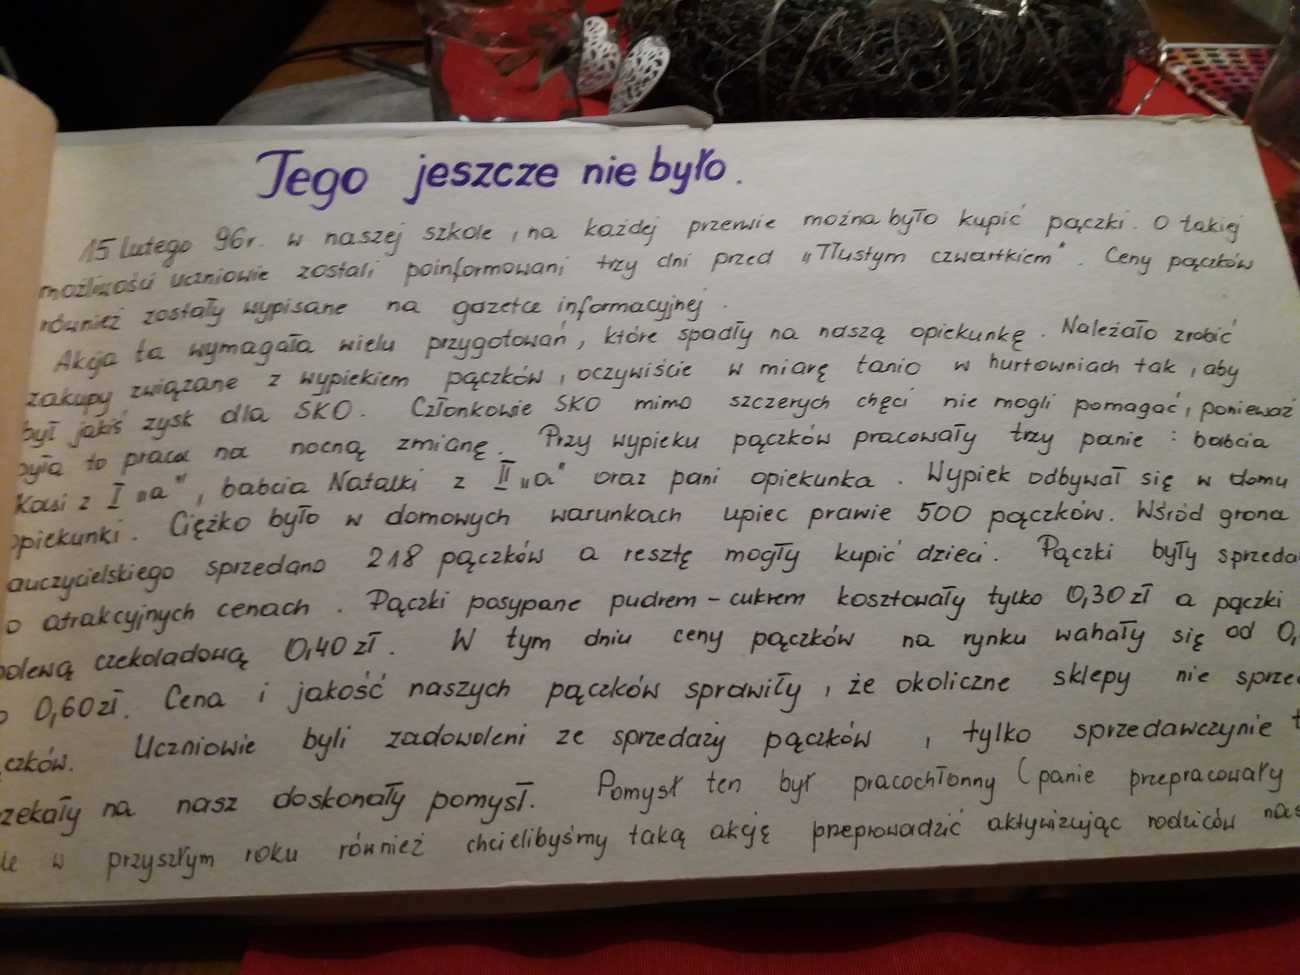 Tego jeszcze nie było.
15 lutego 96r. w naszej szkole, na każdej przerwie można było kupić pączki. O takiej
możliwości uczniowie zostali poinformowani trzy dni przed „Tłustym czwartkiem". Ceny pączków
również zostały wypisane na gazetce informacyjnej.
Akcja ta wymagała wielu przygotowań, które spadły na naszą opiekunkę. Należało zrobić
zakupy związane z wypiekiem pączków, oczywiście w miarę tanio w hurtowniach tak, aby
był jakiś zysk dla SKO. Członkowie SKO mimo szczerych chęci nie mogli pomagać, ponieważ
była to praca na nocną zmianę. Przy wypieku pączków pracowały trzy panie: babcia
Kasi z I „a", babcia Natalki z II „a" oraz pani opiekunka. Wypiek odbywał się w domu
opiekunki. Ciężko było w domowych warunkach upiec prawie 500 pączków. Wśród grona
auczycielskiego sprzedano 218 pączków a resztę mogły kupić dzieci. Pączki były sprzeda
o atrakcyjnych cenach. Pączki posypane pudrem-cukrem kosztowały tylko 0,30 zł a pączki
polewą czekoladową 0,40 zł. W tym dniu ceny pączków na rynku wahały się od 0,
0,60 zł. Cena i jakość naszych pączków sprawiły, że okoliczne sklepy nie sprze
czków. Uczniowie byli zadowoleni ze sprzedaży pączków, tylko sprzedawczynie
zekały na nasz doskonały pomysł. Pomysł ten był pracochłonny (panie przepracowały
le w przyszłym roku również chcielibyśmy taką akcję przeprowadzić aktywizując rodziców nas